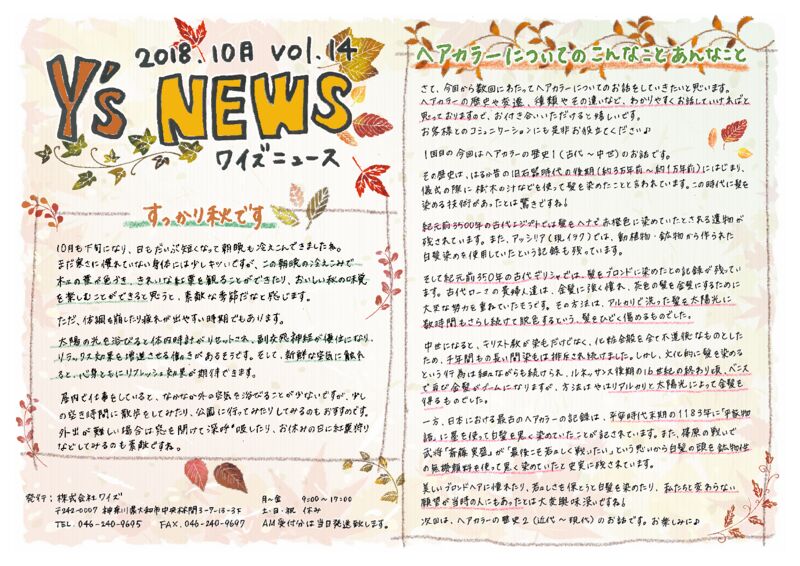 2018.10月 vol.14
Y's NEWS
ワイズニュース
すっかり秋です
10月も下旬になり、日もだいぶ短くなって朝晩も冷えこんできましたね。
まだ寒さに慣れていない身体には少しキツいですが、この朝晩の冷えこみで
木々の葉が色づき、きれいな紅葉を観ることができたり、おいしい秋の味覚
を楽しむことができると思うと、素敵な季節だなと感じます。
ただ、体調を崩したり疲れが出やすい時期でもあります。
太陽の光を浴びると体内時計がリセットされ、副交感神経が優位になり、
リラックス効果を増進させる働きがあるそうです。そして、新鮮な空気に触れ
ると、心身ともにリフレッシュ効果が期待できます。
屋内で仕事をしていると、なかなか外の空気を浴びることが少ないですが、少し
の空き時間に散歩をしてみたり、公園に行ってみたりしてみるのもおすすめです。
外出が難しい場合は窓を開けて深呼吸したり、お休みの日に紅葉狩り
などしてみるのも素敵ですね。
発行：株式会社ワイズ
〒242-0007 神奈川県大和市中央林間3-7-13-3F
TEL. 046-240-9695 FAX. 046-240-9697
月～金 9:00～17:00
土・日・祝 休み
AM受付分は当日発送致します。
ヘアカラーについてのこんなことあんなこと
さて、今回から数回にわたってヘアカラーについてのお話をしていきたいと思います。
ヘアカラーの歴史や変遷、種類やその違いなど、わかりやすくお話していければと
思っておりますので、お付き合いいただけると嬉しいです。
お客様とのコミュニケーションにも是非お役立てください♪
1回目の今回はヘアカラーの歴史1(古代～中世)のお話です。
その歴史は、はるか昔の旧石器時代の後期(約3万年前～約1万年前)にはじまり、
儀式の際に樹木の汁などを使って髪を染めたことと言われています。この時代に髪を
染める技術があったとは驚きですね!
紀元前3500年の古代エジプトでは髪をヘナで赤橙色に染めていたとされる遺物が
残されています。また、アッシリア(現、イラク)では、動植物・鉱物から作られた
白髪染めを使用していたという記録も残っています。
そして紀元前350年の古代ギリシャでは、髪をブロンドに染めたとの記録が残ってい
ます。古代ローマの貴婦人達は、金髪に強く憧れ、茶色の髪を金髪にするために
大変な努力を重ねていたそうです。その方法は、アルカリで洗った髪を太陽光に
数時間もさらし続けて脱色するという、髪をひどく傷めるものでした。
中世になると、キリスト教が染毛だけでなく、化粧全般を全て不道徳なものとした
ため、千年間もの長い間染毛は排斥され続けました。しかし、文化的に髪を染める
という行為は細々ながらも続けられ、ルネッサンス後期の16世紀の終わり頃、ベニス
で再び金髪がブームになりますが、方法はやはりアルカリと太陽光によって金髪を
得るものでした。
一方、日本における最古のヘアカラーの記録は、平安時代末期の1183年に「平家物
語」に墨を使って白髪を黒く染めていたことが記されています。また、篠原の戦いで
武将「斎藤実盛」が「最後こそ若々しく戦いたい」という思いから白髪の頭を鉱物性
の無機顔料を使って黒く染めていたと史実に残されています。
美しいブロンドヘアに憧れたり、若々しさを保とうと白髪を染めたり、私たちと変わらない
願望が当時の人にもあったとは大変興味深いですね!
次回は、ヘアカラーの歴史2(近代～現代)のお話です。お楽しみに♪